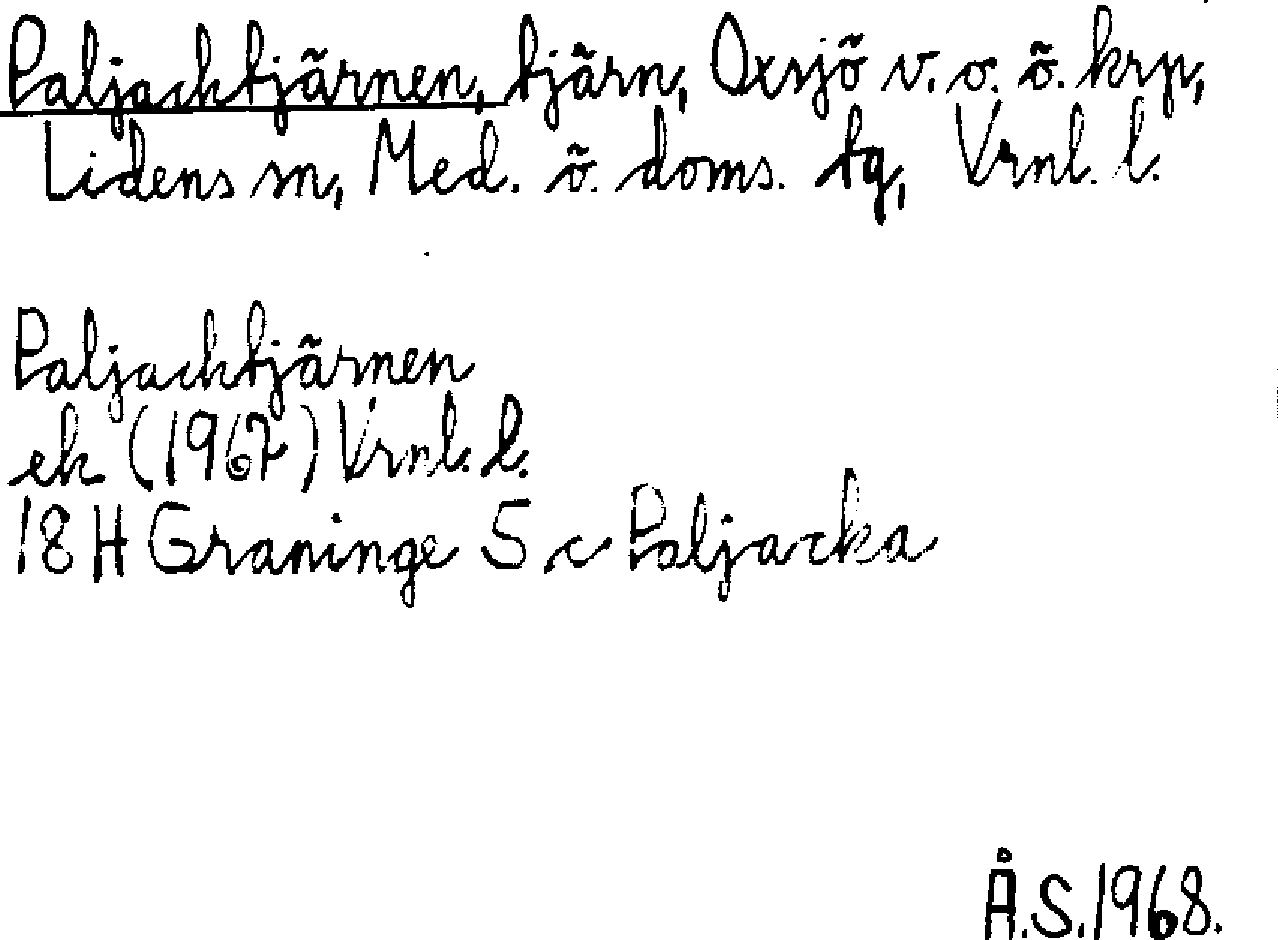 Paljacktjärnen, tjärn, Oxsjö v. o. ö. krp,
Lidens sn, Med. ö. doms. tg, Vrnl. l.
Paljacktjärnen
ek (1967) Vrnl. l.
18 H Graninge S c Paljacka
Å.S. 1968.